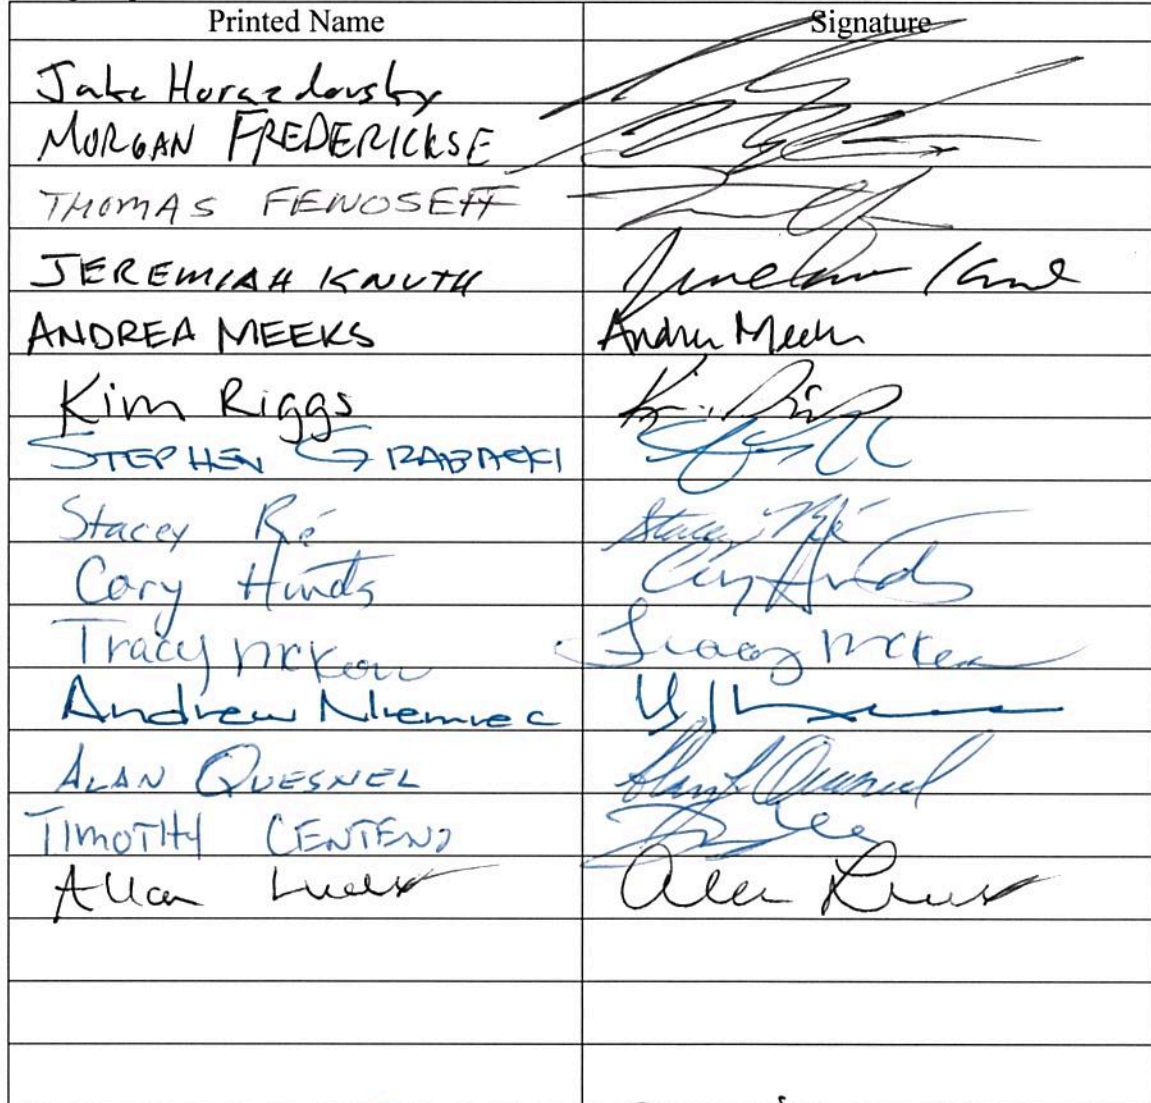 Printed Name Signature
Jake Horazdovsky
MORGAN FREDERICKSE
THOMAS FENOSEFF
JEREMIAH KNUTH
ANDREA MEEKS Andrea Meeks
Kim Riggs
STEPHEN GRABACKI
Stacey Ré Stacey Ré
Cory Hinds Cory Hinds
Tracy McKeon Tracy McKeon
Andrew Niemiec
ALAN QUESNEL Alan Quesnel
TIMOTHY CENTENO
Allan Allan